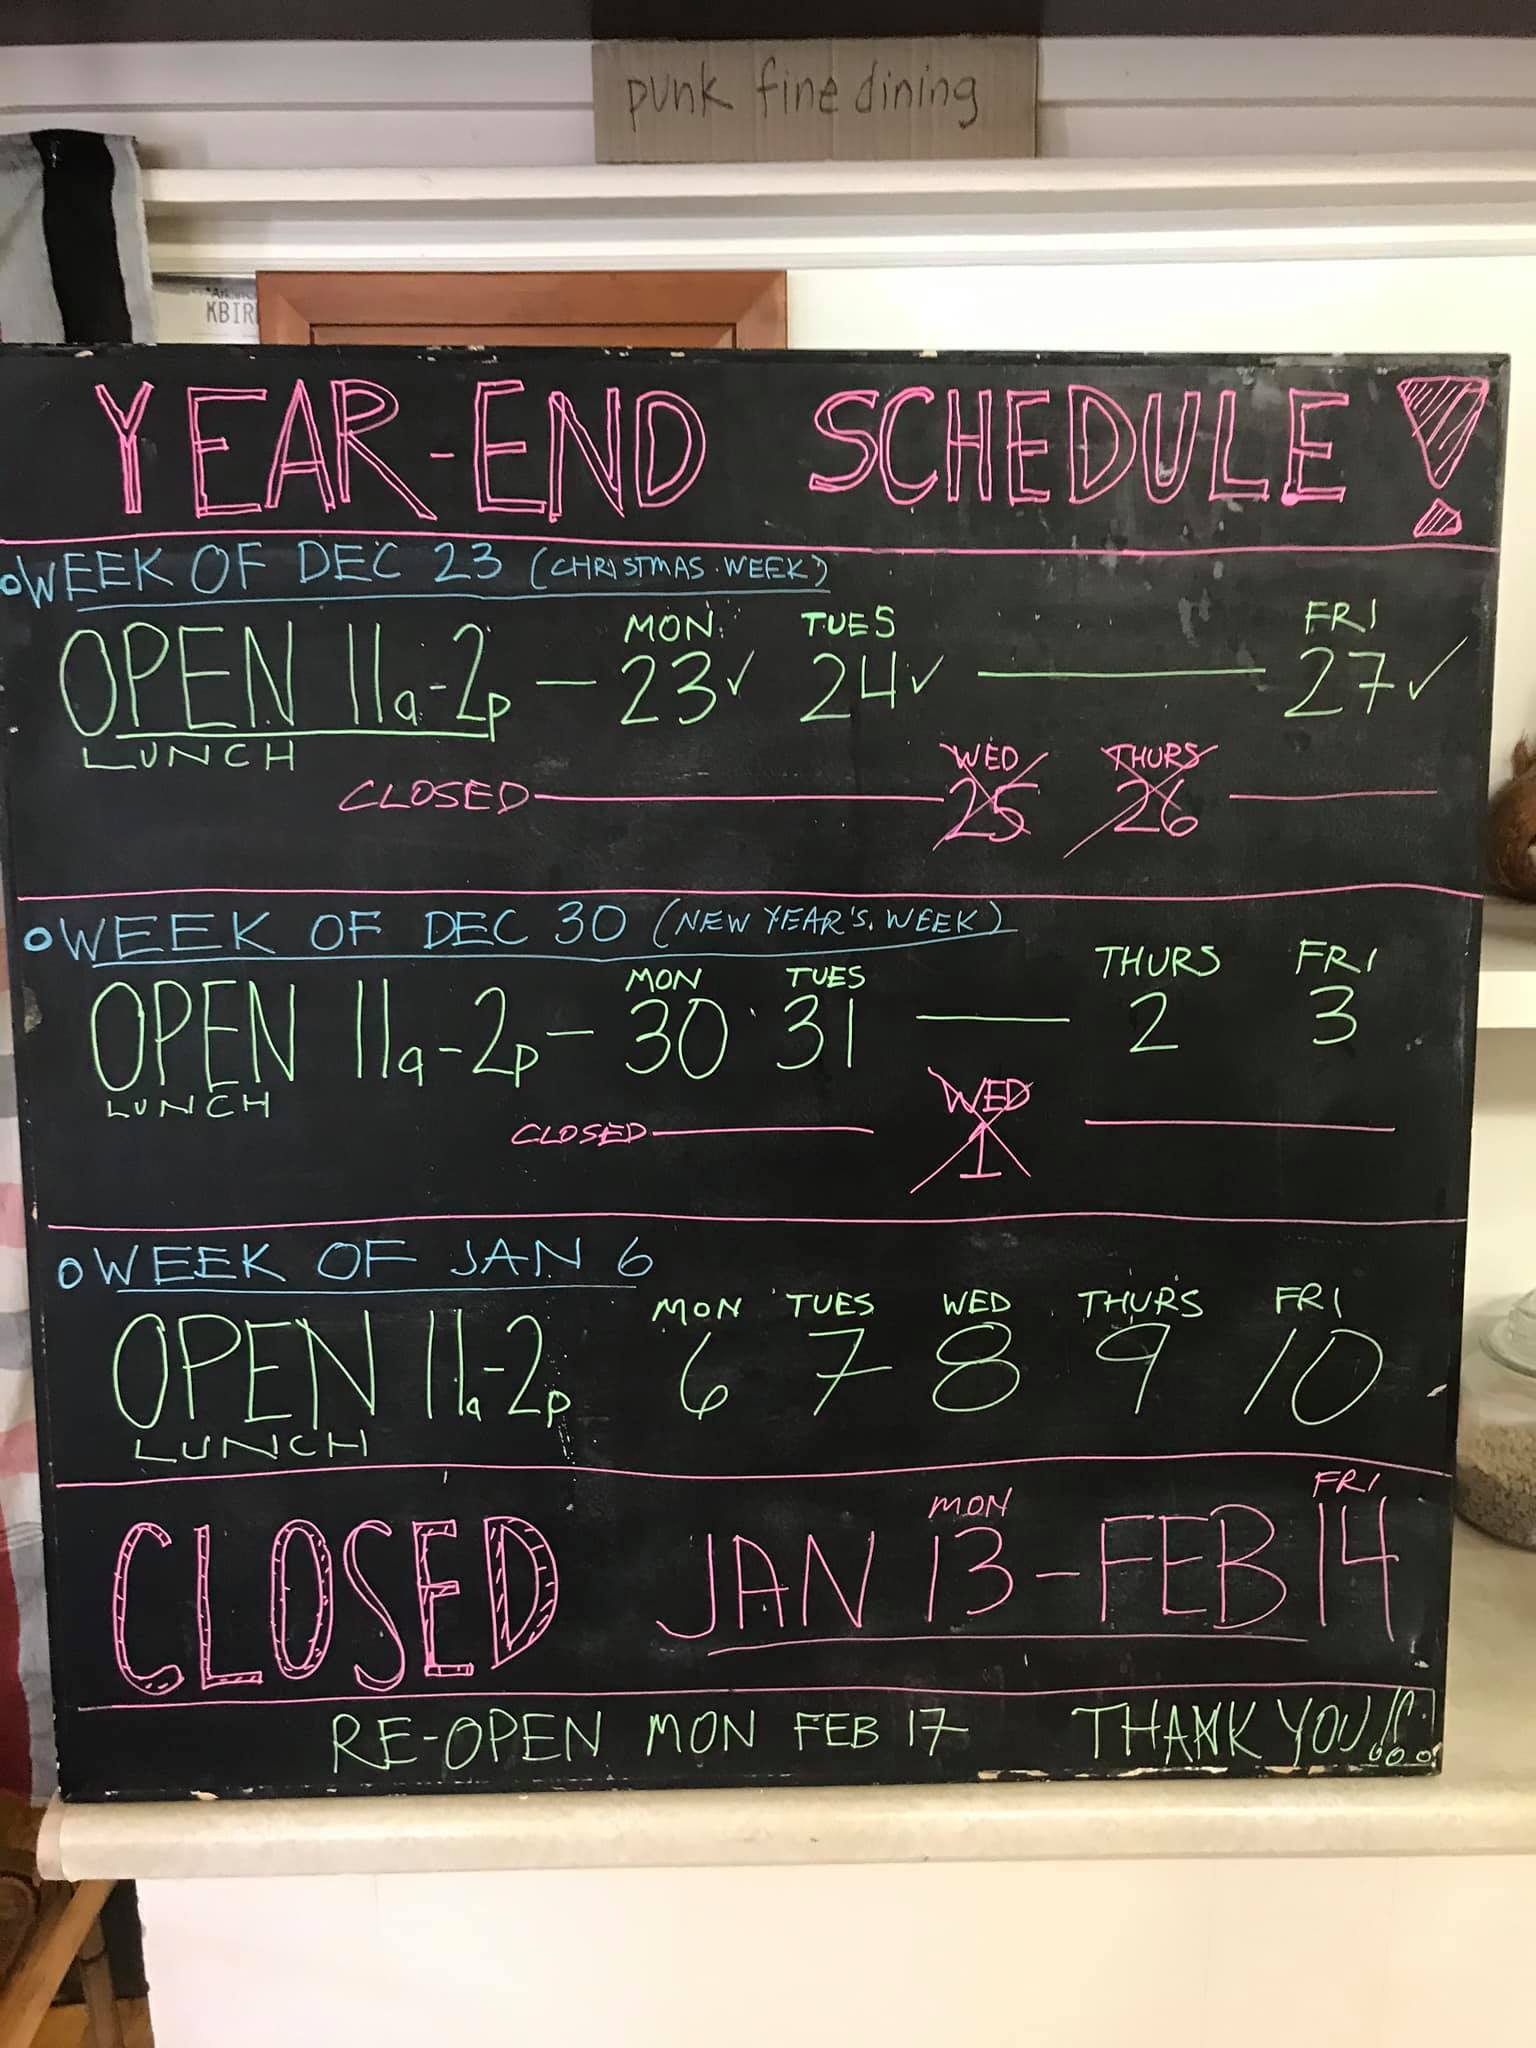 punk fine dining
KBIR
YEAR-END SCHEDULE!
WEEK OF DEC 23 (CHRISTMAS WEEK)
MON TUES FRI
OPEN 11a-2p - 23✓ 24✓ — 27✓
LUNCH
WED THURS
CLOSED — 25 26 —
WEEK OF DEC 30 (NEW YEAR'S WEEK)
MON TUES THURS FRI
OPEN 11a-2p - 30 31 — 2 3
LUNCH
WED
CLOSED — 1 —
WEEK OF JAN 6
MON TUES WED THURS FRI
OPEN 11a-2p 6 7 8 9 10
LUNCH
MON FRI
CLOSED JAN 13 - FEB 14
RE-OPEN MON FEB 17 THANK YOU!!!